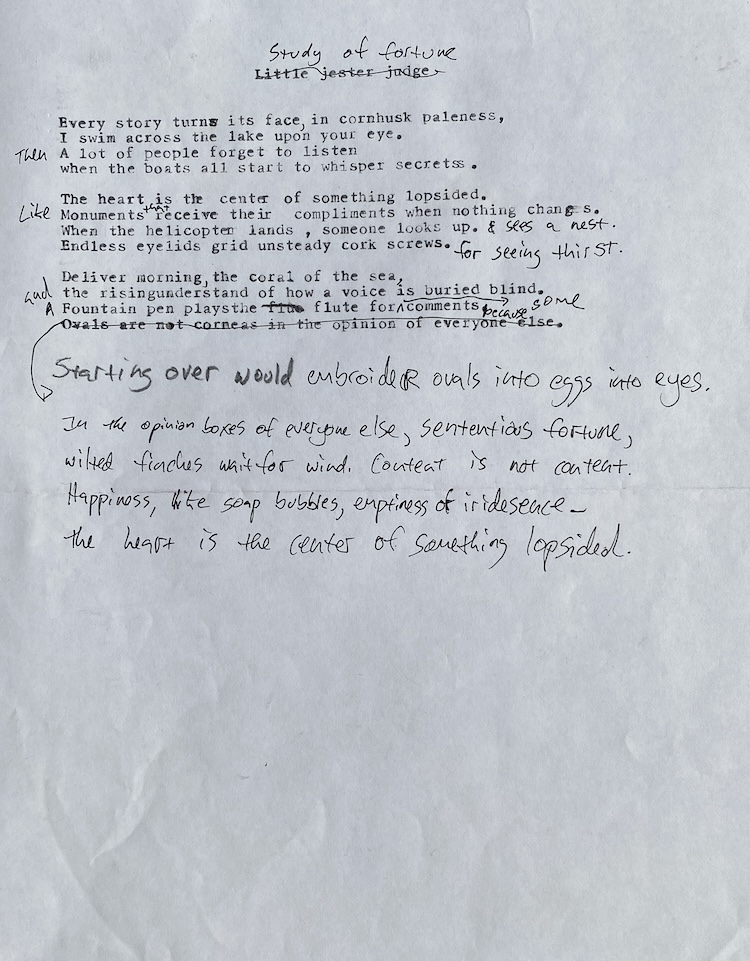 Study of fortune
Little jester judge
Every story turns its face, in cornhusk paleness,
I swim across the lake upon your eye.
Then A lot of people forget to listen
when the boats all start to whisper secretss .
The heart is the center of something lopsided.
Like Monuments that receive their compliments when nothing changes.
When the helicopter lands , someone looks up. & sees a nest.
Endless eyelids grid unsteady cork screws. for seeing thirst.
Deliver morning, the coral of the sea,
and the risingunderstand of how a voice is buried blind.
A Fountain pen playsthe flute for comments because some
Ovals are not corneas in the opinion of everyone else.
Starting over would embroideR ovals into eggs into eyes.
In the opinion boxes of everyone else, sententious fortune,
wilted finches wait for wind. Content is not content.
Happiness, like soap bubbles, emptiness of iridesence –
the heart is the center of something lopsided.